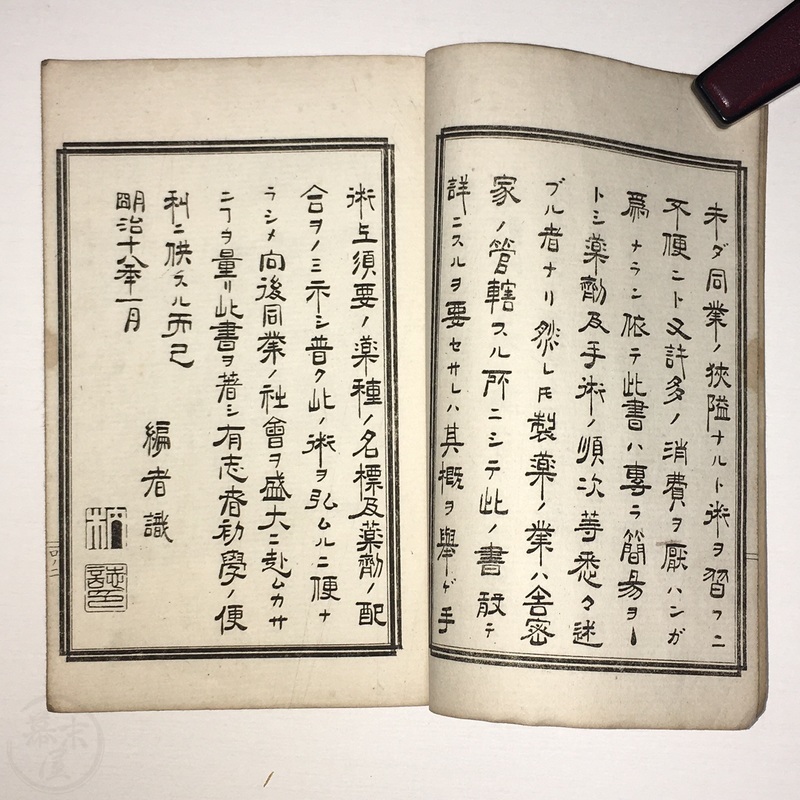 未ダ同業ノ狹隘ナルト術ヲ習フニ
不便ニト又許多ノ消費ヲ厭ハンガ
爲ナラン依テ此書ハ專ラ簡易ヲ
トシ薬劑及手術ノ順次等悉々述
ブル者ナリ然レ𪜈製薬ノ業ハ舎密
家ノ管轄スル所ニシテ此ノ書敢テ
詳ニスルヲ要セサレハ其概ヲ擧ゲ手
術上須要ノ薬種ノ名標及薬劑ノ配
合ヲノミ示シ普ク此ノ術ヲ弘ムルニ便ナ
ラシメ向後同業ノ社會ヲ盛大ニ赴ムカサ
ニヿヲ量リ此書ヲ著シ有志者初學ノ便
利ニ供スル而已
明治十八年一月
編者識